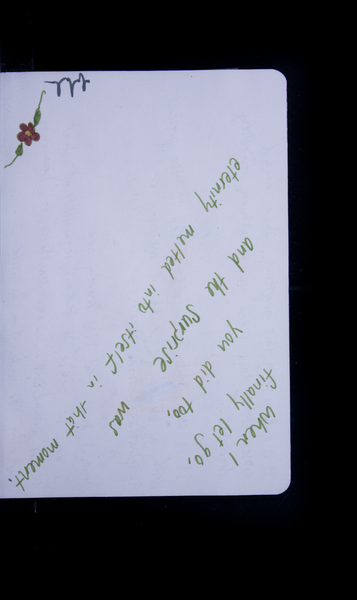 When I
finally let go,
you did too,
and the surprise was
eternity melted into itself in that moment.